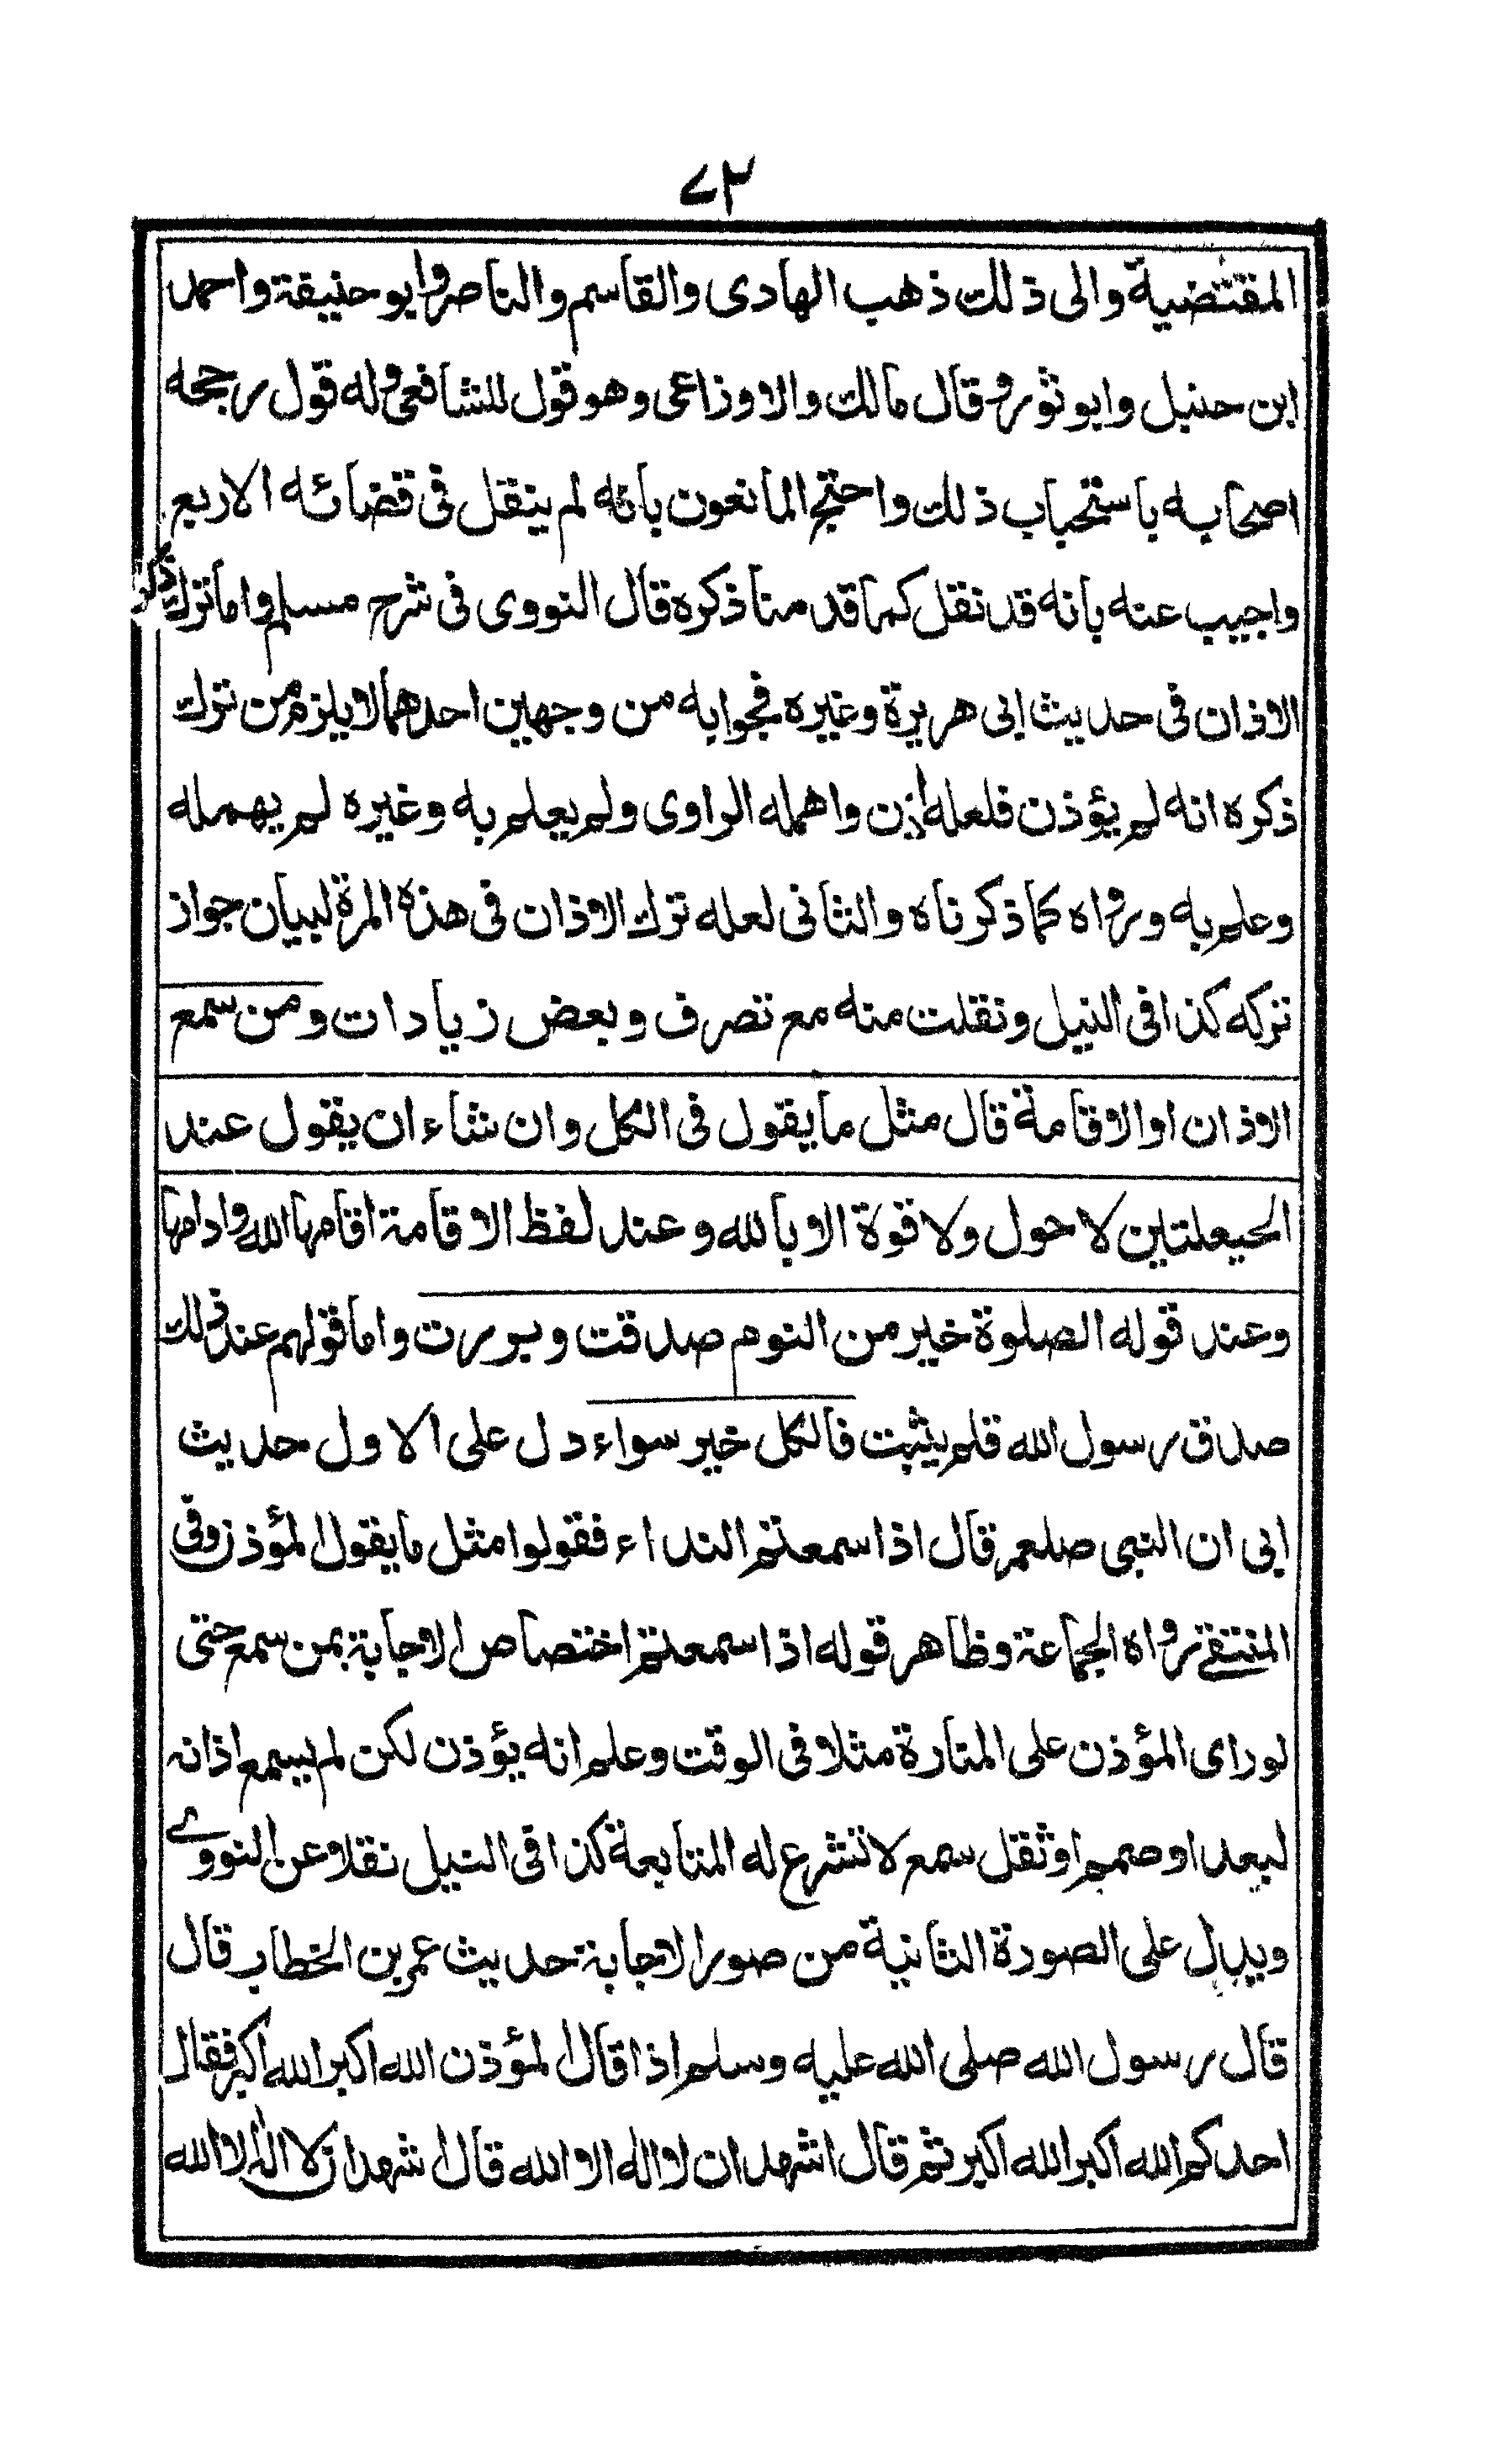 ٧٢
المقتضية والى ذلك ذهب الهادى والقاسم والناصر وابو حنيفة واحمد
ابن حنبل وابو ثور وقال مالك والاوزاعى وهو قول للشافعى وله قول رجحه
اصحابه باستحباب ذلك واحتج المانعون بانه لم ينقل فى قضائه الاربع
واجيب عنه بانه قد نقل كما قد منا ذكره قال النووى فى شرح مسلم واما ترك ذكر
الاذان فى حديث ابى هريرة وغيره فجوابه من وجهين احدهما لا يلزم من ترك
ذكره انه لم يؤذن فلعله اذن واهمله الراوى ولم يعلم به وغيره لم يهمله
وعلم به ورواه كما ذكرناه والثانى لعله ترك الاذان فى هذه المرة لبيان جواز
تركه كذا فى النيل ونقلت منه مع تصرف وبعض زيادات ومن سمع
الاذان او الاقامة قال مثل ما يقول فى الكل وان شاء ان يقول عند
الحيعلتين لا حول ولا قوة الا بالله وعند لفظ الاقامة اقامها الله وادامها
وعند قوله الصلوة خير من النوم صدقت وبررت واما قولهم عند ذلك
صدق رسول الله فلم يثبت فالكل خير سواء دل على الاول حديث
ابى ان النبى صلعم قال اذا سمعتم النداء فقولوا مثل ما يقول المؤذن وفى
المنتقے رواه الجماعة وظاهر قوله اذا سمعتم اختصاص الاجابة بمن سمع حتى
لو راى المؤذن على المنارة مثلا فى الوقت وعلم انه يؤذن لكن لم يسمع اذانه
لبعد او صمم او ثقل سمع لا تشرع له المتابعة كذا فى النيل نقلا عن النووے
ويدل على الصورة الثانية من صور الاجابة حديث عمر بن الخطاب قال
قال رسول الله صلى الله عليه وسلم اذا قال المؤذن الله اكبر الله اكبر فقال
احدكم الله اكبر الله اكبر ثم قال اشهد ان لا اله الا الله قال اشهد ان لا اله الا الله